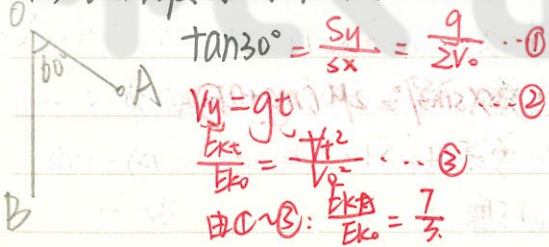 O
60°
A
B
tan30° = Sy/Sx = g/2V₀ …①
Vy = gt …②
Ekt/Ek₀ = Vt²/V₀² …③
由①~③: EkA/Ek₀ = 7/3.